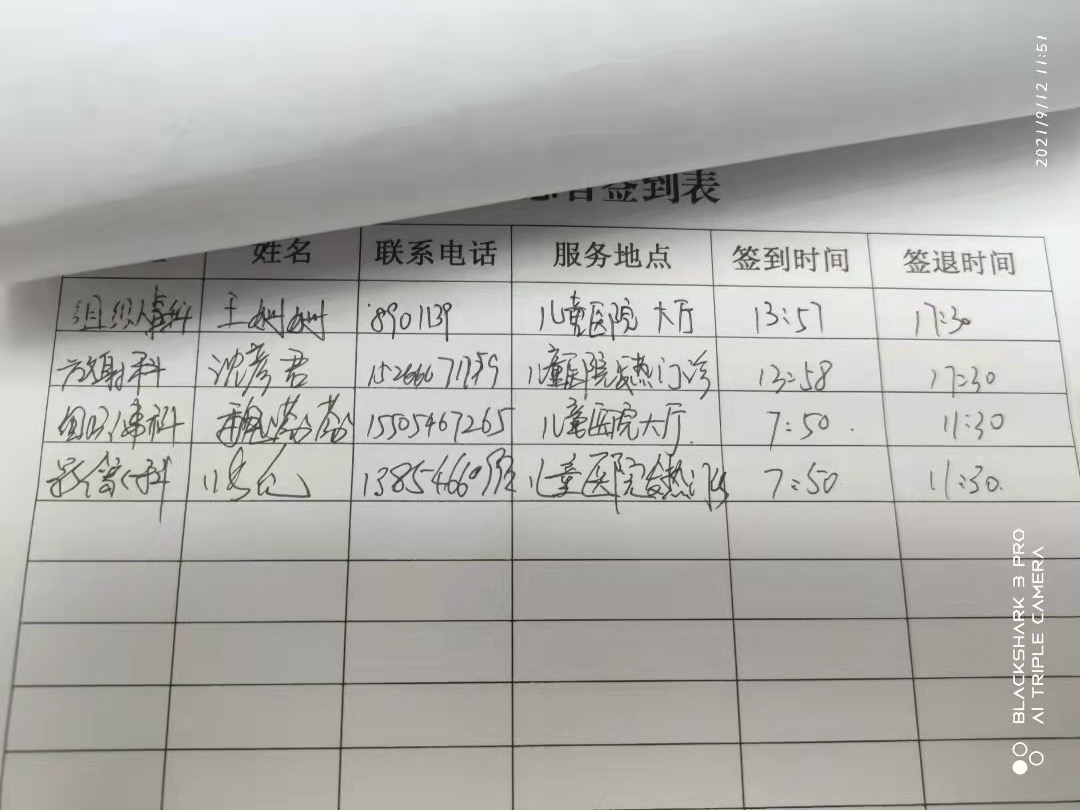 签到表
姓名 联系电话 服务地点 签到时间 签退时间
组织人事科 王姗姗 8901139 儿童医院 大厅 13:57 17:30
放射科 沈彦君 儿童医院发热门诊 13:58 17:30
15505467265 儿童医院大厅 7:50 11:30
儿童医院发热门诊 7:50 11:30
2021/9/12 11:51
BLACKSHARK 3 PRO
AI TRIPLE CAMERA